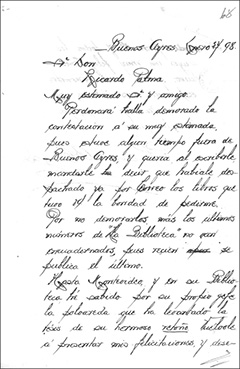 68
Buenos Ayres, Enero 24/98.
Sr Don
Ricardo Palma
Muy estimado Sr y amigo.
Perdonará halla demorado la
contestación á su muy estimada,
pues estuve algun tiempo fuera de
Buenos Ayres, y queria al escribirle
mandarle ha decir, que habiale des-
pachado ya por Correo los libros que
tuvo Vd la bondad de pedirme.
Por no demorarlos más los ultimos
números de "La Biblioteca" no van
encuadernados, pues recien se
publica el último.
Hasta Montevideo, y en su Biblio-
teca hé sabido por su propio gefe
la polvareda que ha levantado la
tésis de su hermoso retoño
á presentar mis felicitaciones, y dese-